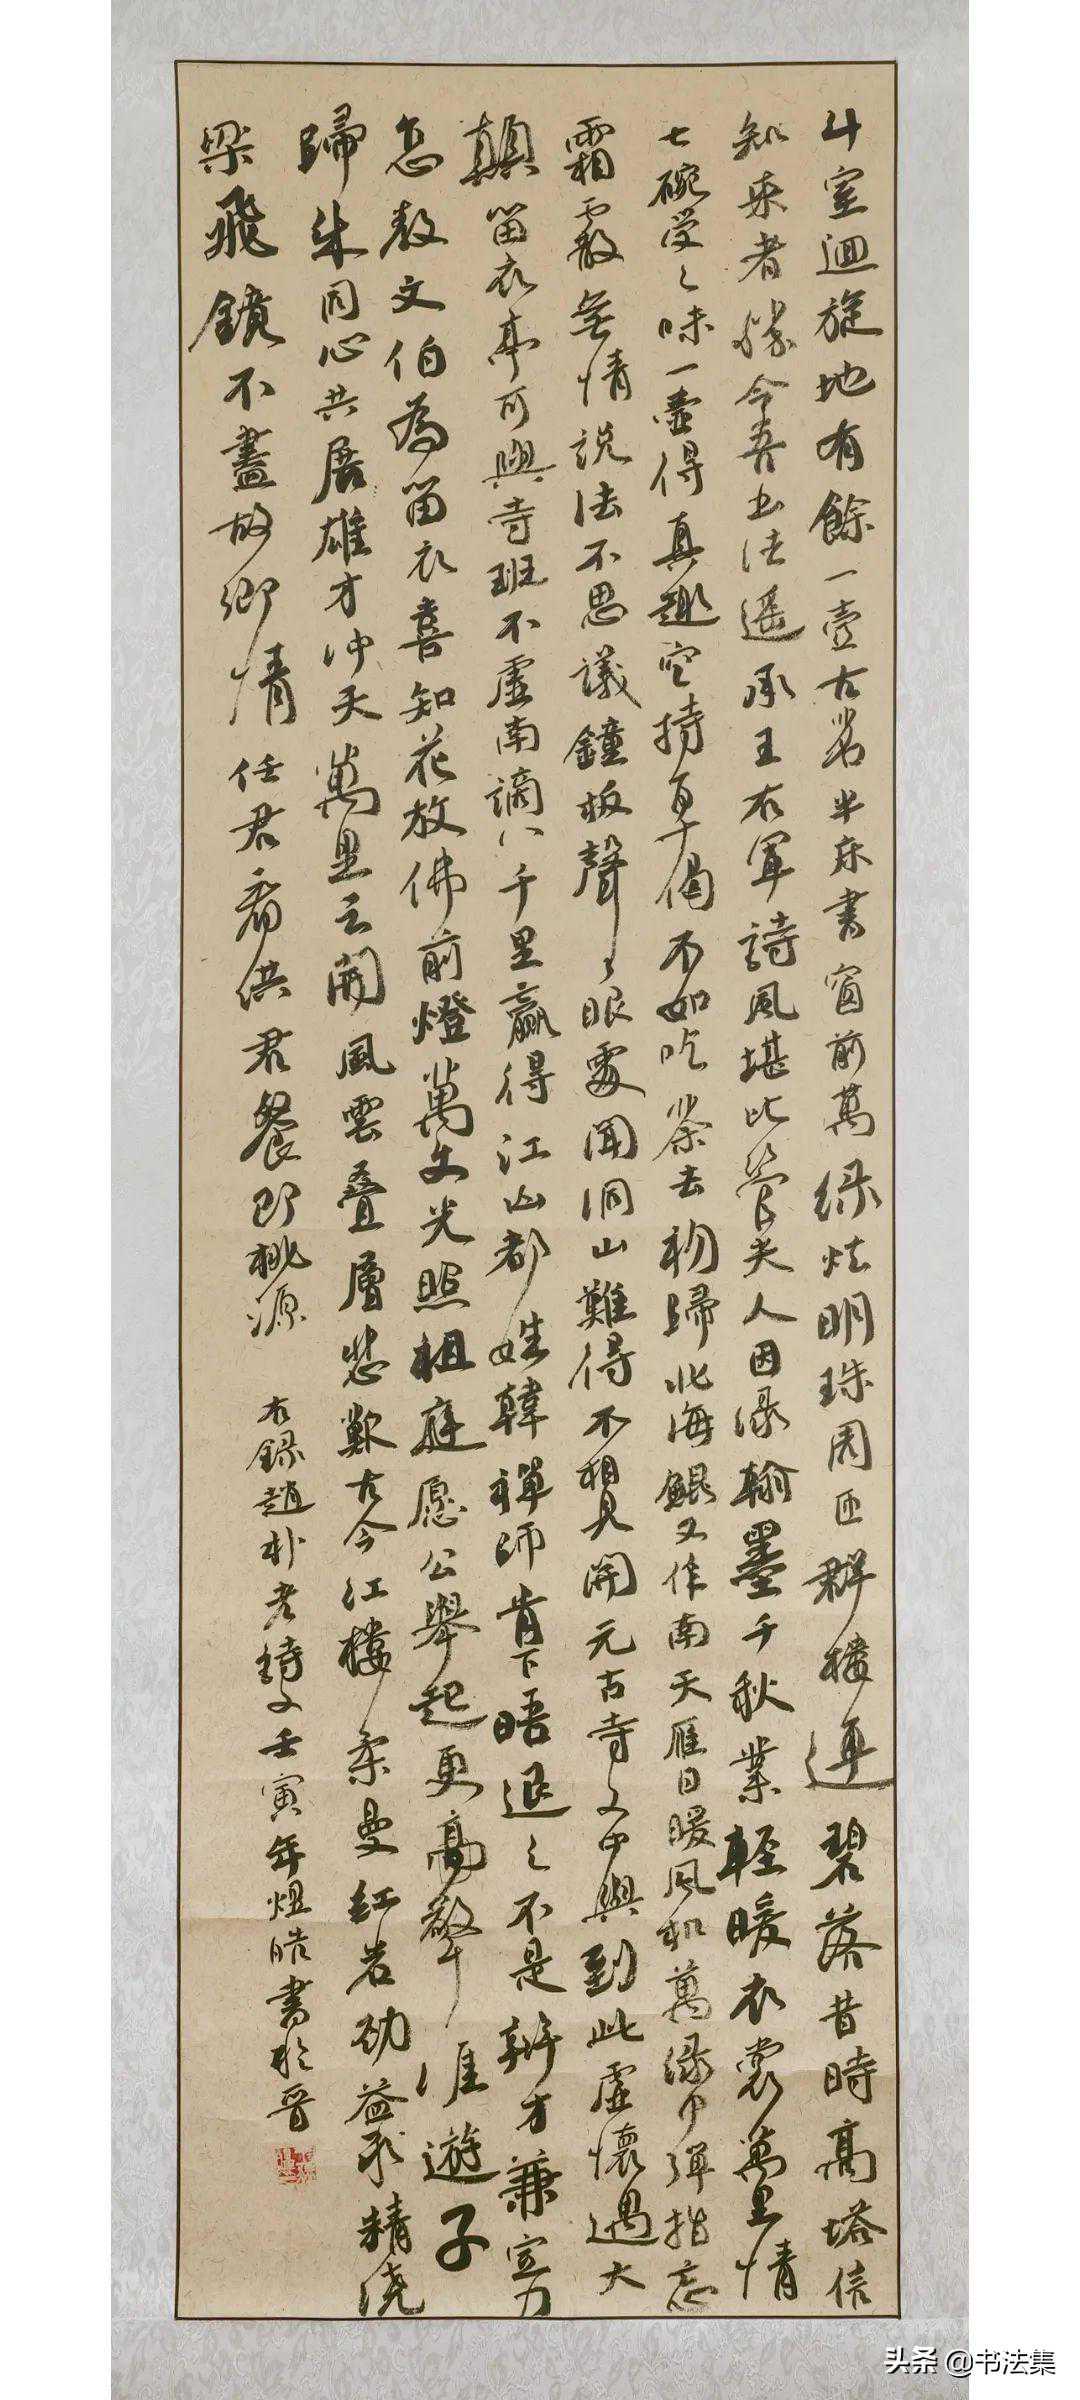 斗室迴旋地有餘一壺古茗半床書窗前萬綠炫明珠周匝群樓連碧落昔時高塔信
知來者勝今吾書法遥承王右軍詩風堪比管夫人因緣翰墨千秋業輕暖衣裳萬里情
七碗受之味一壺得真趣空持百千偈不如吃茶去物歸北海鯤又作南天雁日暖風和萬綠中彈指忘
霜霰無情說法不思議鐘板聲聲眼處聞洞山難得不相見開元古寺之中與到此虛懷遇大
顛留衣亭可與寺班不虛南謫八千里贏得江山都姓韓禪師肯下晤退之不是辦才兼定力
怎教文伯為留衣喜知花放佛前燈萬丈光照祖庭愿公舉起更高擎 遊子
歸來同心共展雄才沖天萬里云開風雲叠層悲歎古今江樓柔曼紅岩劲益求精繞
梁飛鏡不盡故鄉情任君看供君餐即桃源
右録趙朴老詩文壬寅年煜皓書於晉
头条 @书法集